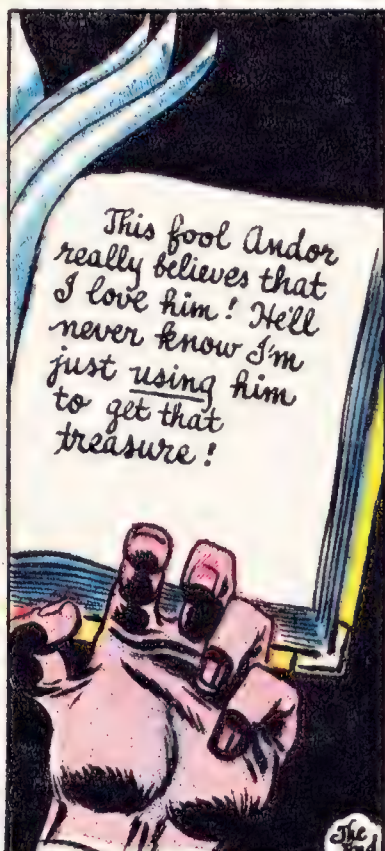 This fool Andor
really believes that
I love him! He'll
never know I'm
just using him
to get that
treasure!
The
End